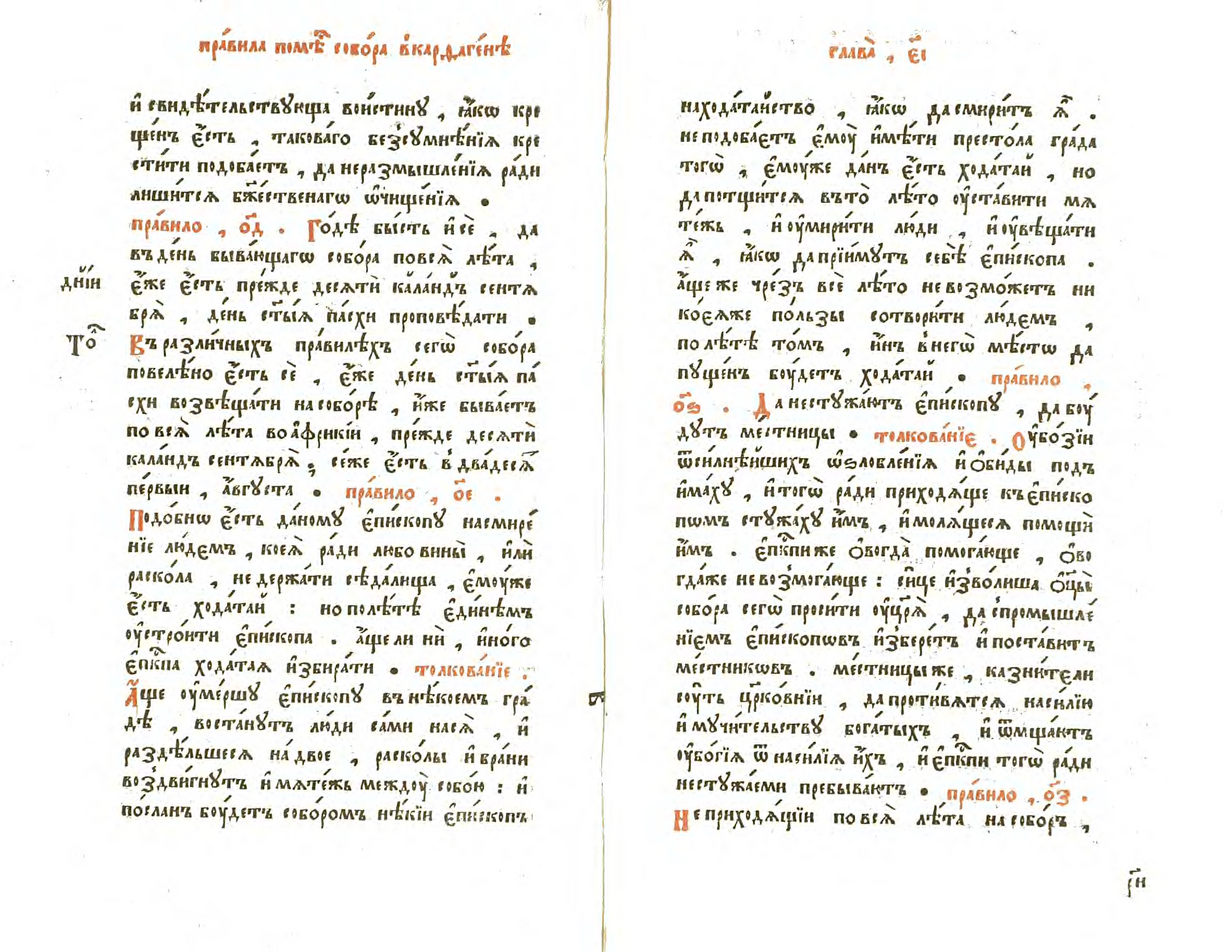 пра́вила помѣ́с собо́ра в҆карѳаге́нѣ
и҆ свидѣ́тельствꙋюща вои́стинꙋ , ꙗ҆́кѡ кре
ще́нъ є҆́сть , такова́го безсꙋмнѣ́нїѧ кре
сти́ти подоба́етъ , да неразмышле́нїѧ ра́ди
лиши́тсѧ бж҃е́ственагѡ ѡ҆чище́нїѧ .
пра́вило , о҃д . Годѣ̀ бы́сть и҆ сѐ , да
въ де́нь быва́ющагѡ собо́ра по всѧ̀ лѣ́та ,
дні́и
є҆́же є҆́сть пре́жде десѧтѝ кала́ндъ сентѧ
брѧ̀ , де́нь ст҃ы́ѧ па́схи проповѣ́дати .
То҇л
Въ разли́чныхъ пра́вилѣхъ сегѡ̀ собо́ра
повелѣ́но є҆́сть сѐ , є҆́же де́нь ст҃ы́ѧ па́
схи возвѣща́ти на собо́рѣ , и҆́же быва́етъ
по всѧ̀ лѣ́та во а҆́фрикїи , пре́жде десѧтѝ
кала́ндъ сентѧбрѧ̀ , се́же є҆́сть в҆ два́десѧ҇т
пе́рвыи , а҆́вгꙋста . пра́вило , о҃е .
Подо́бнѡ є҆́сть да́номꙋ є҆пи́скопꙋ на смире́
нїе лю́демъ , коеѧ̀ ра́ди любо вины̀ , и҆лѝ
раско́ла , не держа́ти сѣда́лища , є҆моу́же
є҆́сть хода́таи : но по лѣ́тѣ є҆ди́нѣмъ
оу҆стро́ити є҆пи́скопа . а҆́ще ли нѝ , и҆но́го
є҆пⷭ҇кпа хода́таѧ и҆збира́ти . толкова́нїе .
А҆́ще оу҆ме́ршꙋ є҆пи́скопꙋ въ нѣ́коемъ гра́
дѣ , воста́нꙋтъ лю́ди са́ми на сѧ̀ , и҆
раздѣ́льшесѧ на́двое , раско́лы и҆ бра́ни
воздви́гнꙋтъ и҆ мѧте́жь междоу̀ собо́ю : и҆
по́сланъ боу́детъ собо́ромъ нѣ́кїи є҆пи́скопъ
глава̀ , є҃і
на хода́таиство , ꙗ҆́кѡ да смири́тъ ѧ҆̀ .
не подоба́етъ є҆моу̀ и҆мѣ́ти престо́ла гра́да
тогѡ̀ , є҆моу́же да́нъ є҆́сть хода́таи , но
да потщи́тсѧ въ то̀ лѣ́то оу҆ста́вити мѧ
те́жь , и҆ оу҆мири́ти лю́ди , и҆ оу҆вѣща́ти
ѧ҆̀ , ꙗ҆́кѡ да прїи́мꙋтъ себѣ̀ є҆пи́скопа .
а҆́ще же чрезъ всѐ лѣ́то не возмо́жетъ ни
коеѧ́же по́льзы сотвори́ти лю́демъ ,
по лѣ́тѣ то́мъ , и҆́нъ в҆ негѡ̀ мѣ́стѡ да
пꙋще́нъ боу́детъ хода́таи . пра́вило ,
о҃ѕ . Да не стꙋжа́ютъ є҆пи́скопꙋ , да боу́
дꙋтъ ме́стницы . толкова́нїе . Оу҆бо́зїи
ѿ си́льнѣишихъ ѡ҆ѕлобле́нїѧ и҆ ѻ҆би́ды подъ
и҆ма́хꙋ , и҆ тогѡ̀ ра́ди приходѧ́ще къ є҆пи́ско
пѡмъ стꙋжа́хꙋ и҆̀мъ , и҆ молѧ́щесѧ помощѝ
и҆̀мъ . є҆пⷭ҇кпи же ѻ҆вогда̀ помога́юще , ѻ҆во
гда́же не возмога́юще : си́це и҆зво́лиша ѻ҆ц҃ы̀
собо́ра сегѡ̀ проси́ти оу҆ цр҃ѧ̀ , да с промышле́
нїемъ є҆пи́скоповъ и҆збере́тъ и҆ поста́витъ
ме́стникѡвъ . ме́стницы же , казни́тели
соу́ть цр҃ко́внїи , да проти́вѧтсѧ наси́лїю
и҆ мꙋчи́тельствꙋ бога́тыхъ , и҆ ѿмща́ютъ
оу҆бо́гїѧ ѿ наси́лїѧ и҆́хъ , и҆ є҆пⷭ҇кпи тогѡ̀ ра́ди
не стꙋжа́еми пребыва́ютъ . пра́вило , о҃з .
Не приходѧ́щїи по всѧ̀ лѣ́та на собо́ръ ,
р҃н